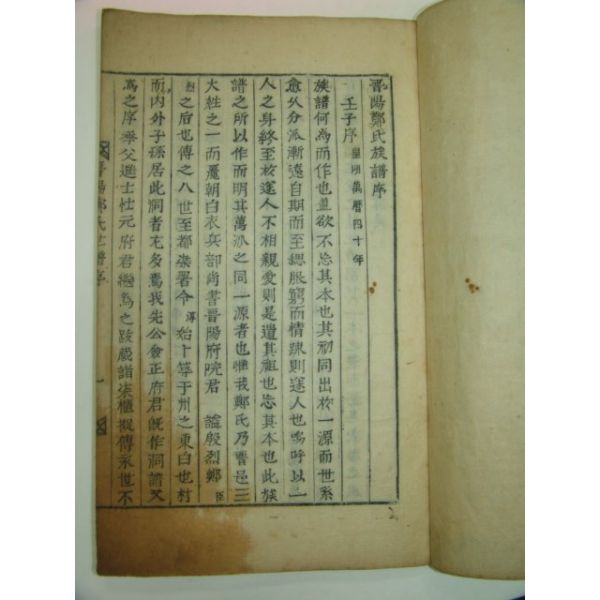 晋陽鄭氏族譜序
壬子序 皇明萬曆四十年
族譜何為而作也盖欲不忘其本也其初同出於一源而世系
愈久分派漸遠自期而至緦服窮而情疎則途人也嗚呼以一
人之身終至於途人不相親愛則是遺其祖也忘其本也此族
譜之所以作而明其萬派之同一源者也惟我鄭氏乃晋邑三
大姓之一而麗朝白衣兵部尚書晋陽府院君 謚殷烈鄭臣
烈之后也傳之八世至都染署令 澤始卜築于州之東白也村
而内外子孫居此洞者充多焉我先公僉正府君旣作洞譜又
為之序季父進士仕元府君繼為之跋藏譜柒櫃擬傳永世不
晋陽鄭氏世譜序 一